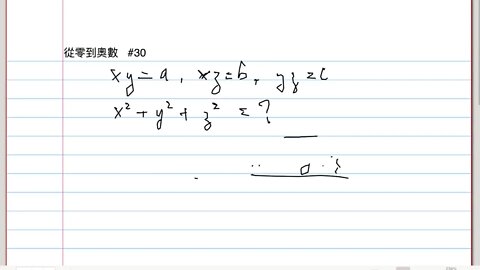 從零到奧數 #30
xy=a, xz=b, yz=c
x²+y²+z² = ?